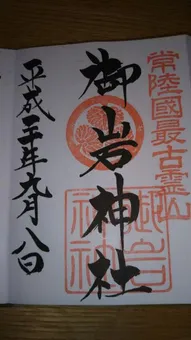 常陸國最古霊山
御岩神社
御岩
神社
平成二十年九月八日